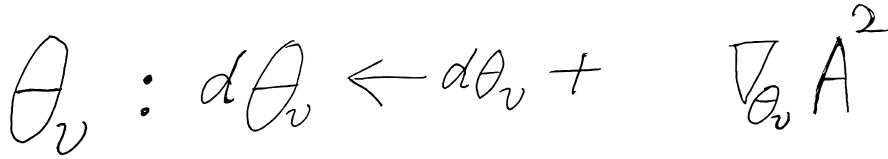 θ_v : dθ_v ← dθ_v + ∇_{θ_v} A^2